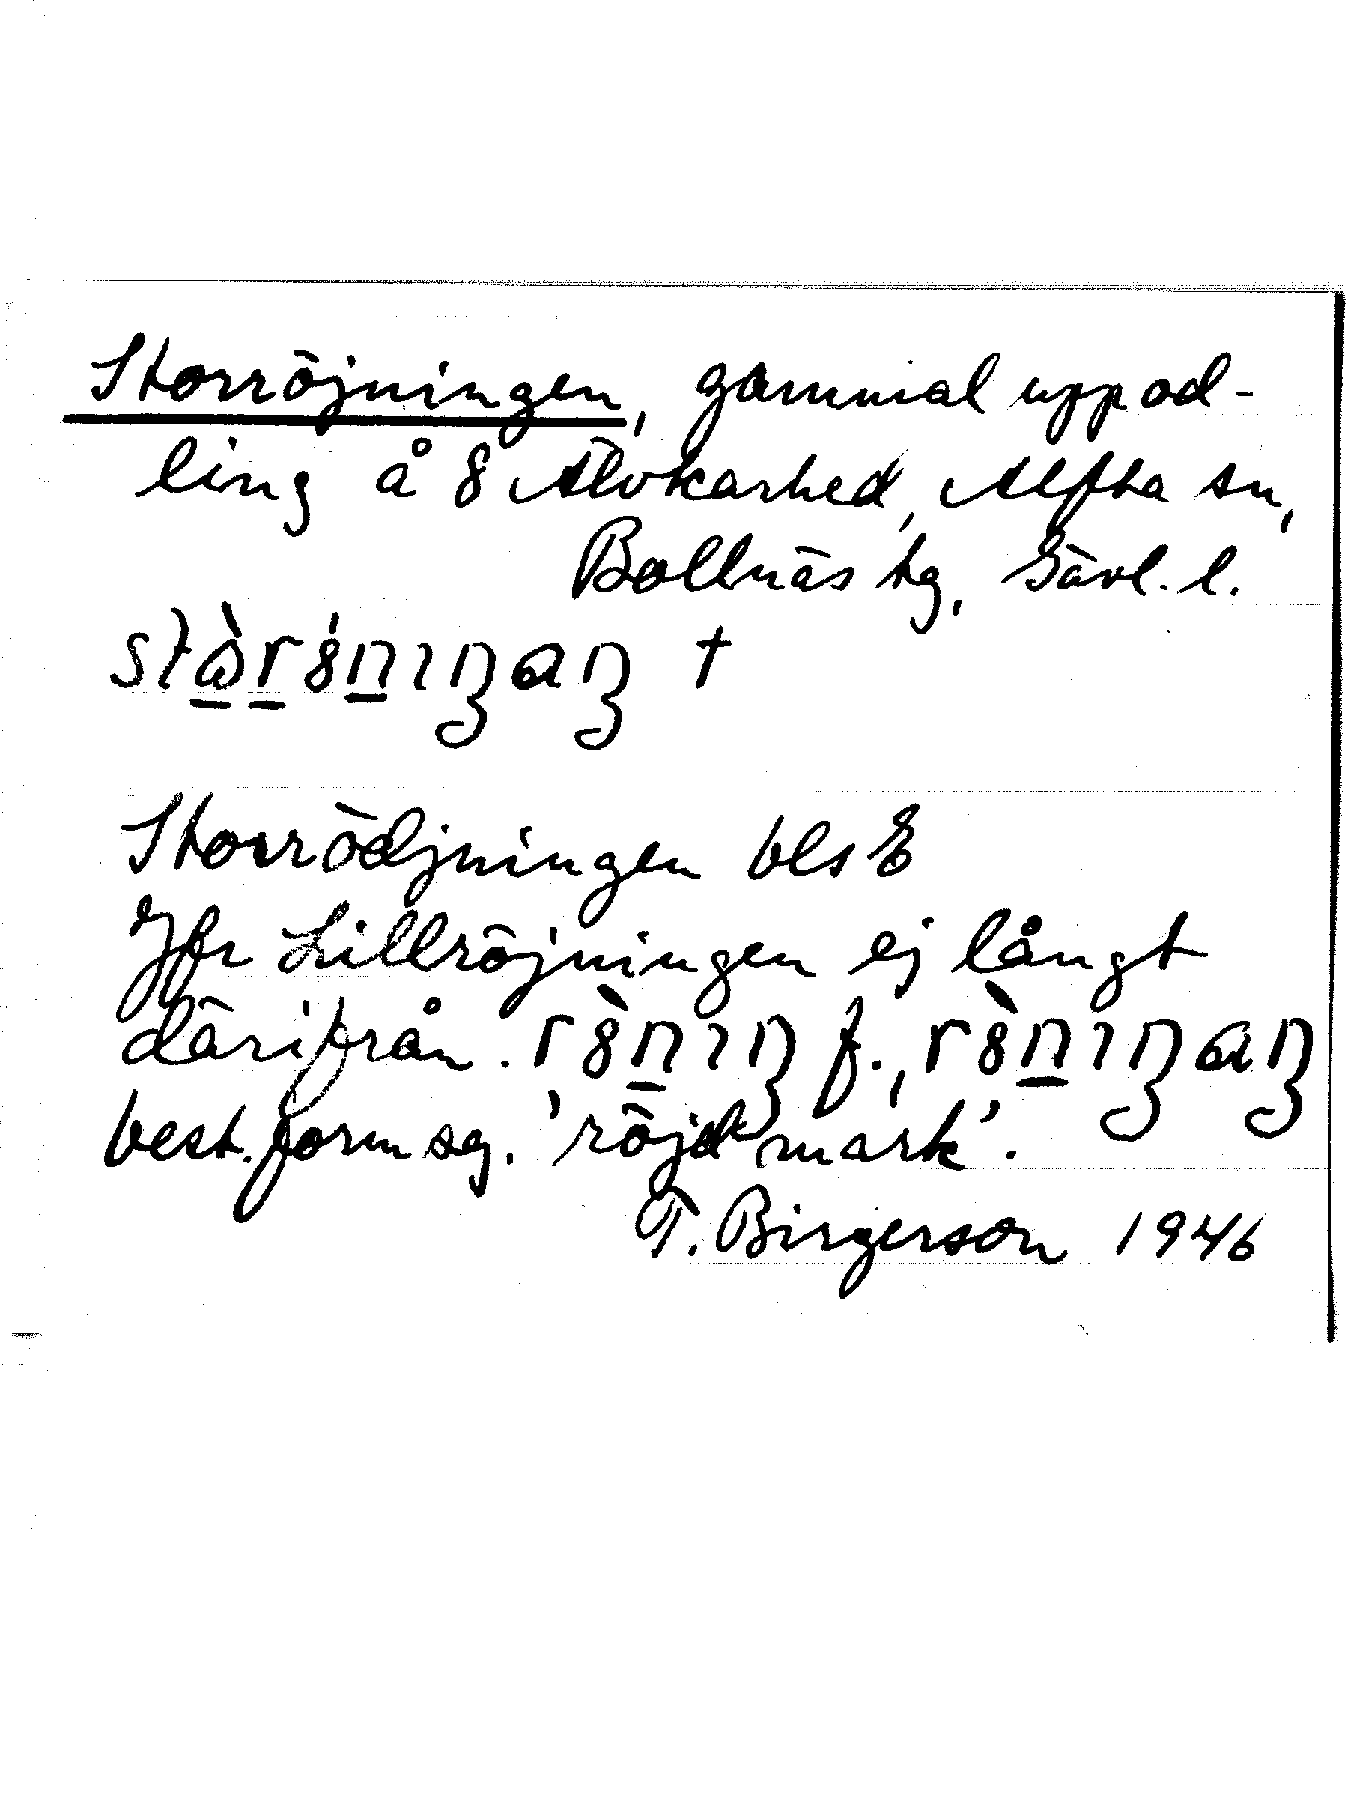 Storröjningen, gammal uppod-
ling å 8 Älvkarhed, Alfta sn,
Bollnäs tg, Gävl. l.
†
Storrödjningen bls E
Jfr Lillröjningen ej långt
därifrån. f.,
best. form sg. 'röjd mark'.
T. Birgerson 1946